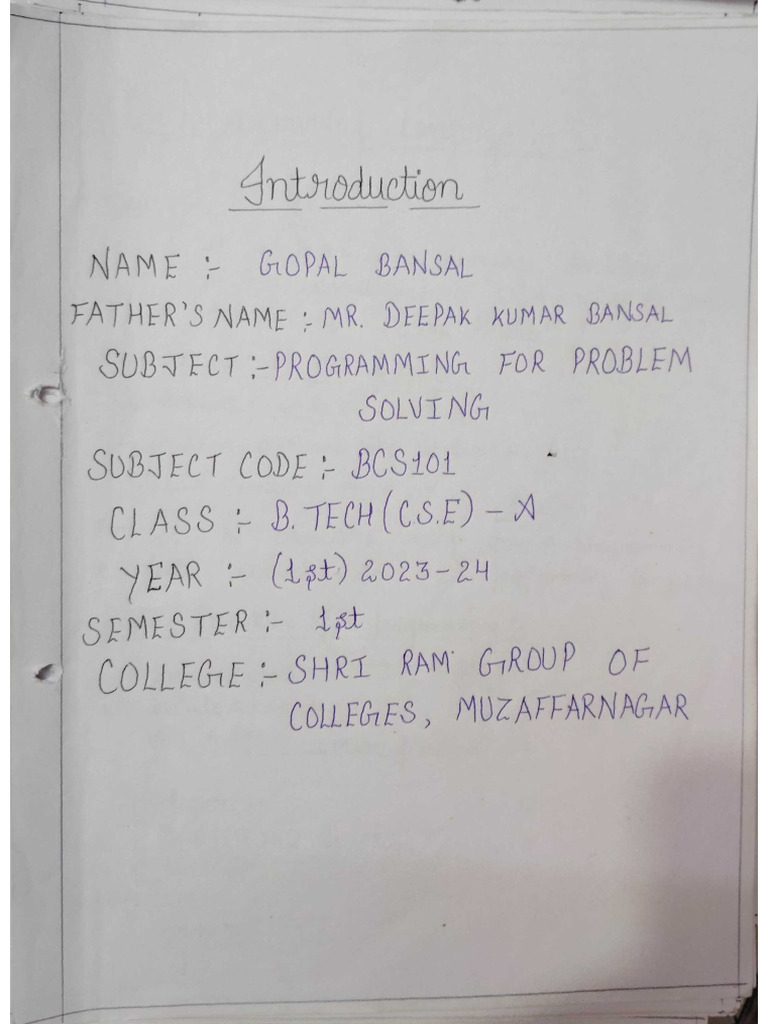 Introduction
NAME :- GOPAL BANSAL
FATHER'S NAME :- MR. DEEPAK KUMAR BANSAL
SUBJECT :- PROGRAMMING FOR PROBLEM
SOLVING
SUBJECT CODE :- BCS101
CLASS :- B. TECH (C.S.E) - A
YEAR :- (1st) 2023-24
SEMESTER :- 1st
COLLEGE :- SHRI RAM GROUP OF
COLLEGES, MUZAFFARNAGAR